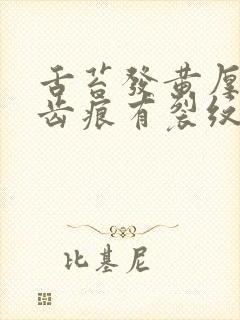 舌苔發黃厚
齒痕有裂紋
比基尼